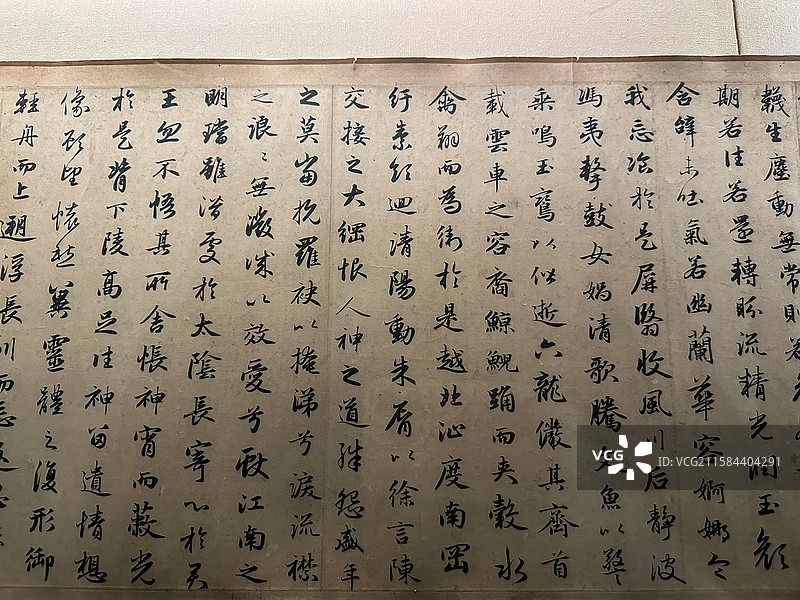 韈生塵動無常則若
期若往若還轉盼流精光潤玉顏
含辭未吐氣若幽蘭華容婀娜令
我忘飡於是屏翳收風川后靜波
馮夷擊鼓女媧清歌騰文魚以警
乘鳴玉鸞以偕逝六龍儼其齊首
載雲車之容裔鯨鯢踊而夾轂水
禽翔而為衛於是越北沚度南岡
紆素領迴清陽動朱脣以徐言陳
交接之大綱恨人神之道殊怨盛年
之莫當抗羅袂以掩涕兮淚流襟
之浪〻無微誠以效愛兮獻江南之
明璫雖潛處於太陰長寄心於君
王忽不悟其所舍悵神宵而蔽光
於是背下陵高足往神留遺情想
像顧望懷愁冀靈體之復形御
輕舟而上遡浮長川而忘返思
VCG
视觉中国
ID: VCG211584404291